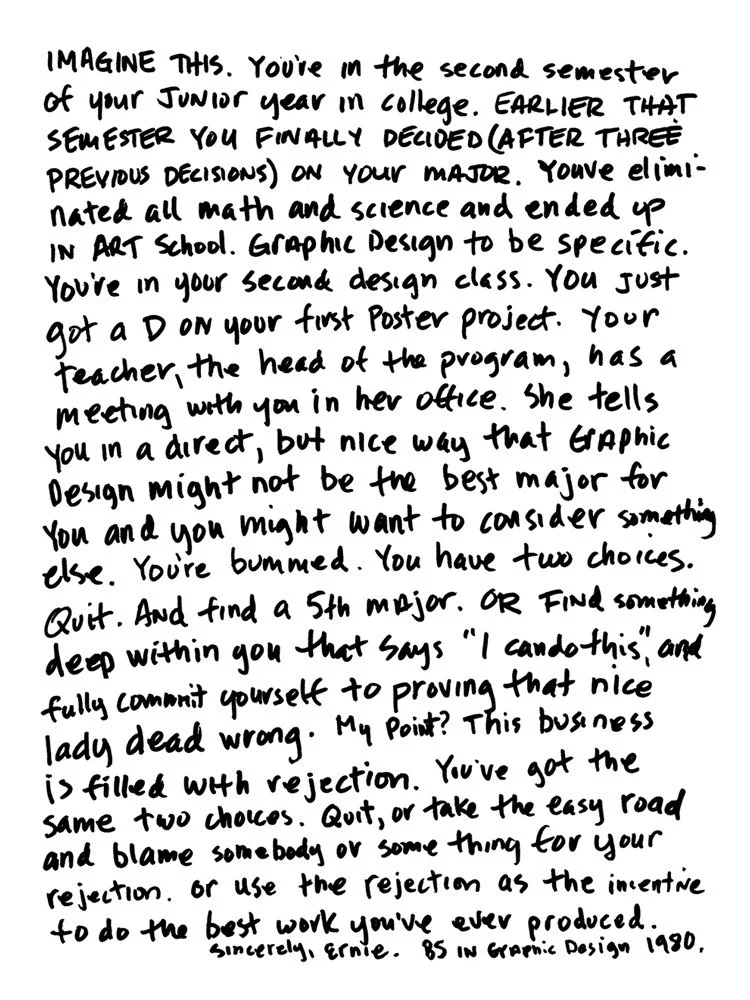 IMAGINE THIS. You're in the second semester
of your JUNIOR year in college. EARLIER THAT
SEMESTER YOU FINALLY DECIDED (AFTER THREE
PREVIOUS DECISIONS) ON YOUR MAJOR. Youve elimi-
nated all math and science and ended up
IN ART School. Graphic Design to be specific.
You're in your second design class. You just
got a D on your first Poster project. Your
teacher, the head of the program, has a
meeting with you in her office. She tells
you in a direct, but nice way that Graphic
Design might not be the best major for
You and you might want to consider something
else. You're bummed. You have two choices.
Quit. And find a 5th major. OR FIND something
deep within you that says "I can do this", and
fully commit yourself to proving that nice
lady dead wrong. My Point? This business
is filled with rejection. You've got the
same two choices. Quit, or take the easy road
and blame somebody or some thing for your
rejection. or use the rejection as the incentive
to do the best work you've ever produced.
Sincerely, Ernie. BS IN Graphic Design 1980.